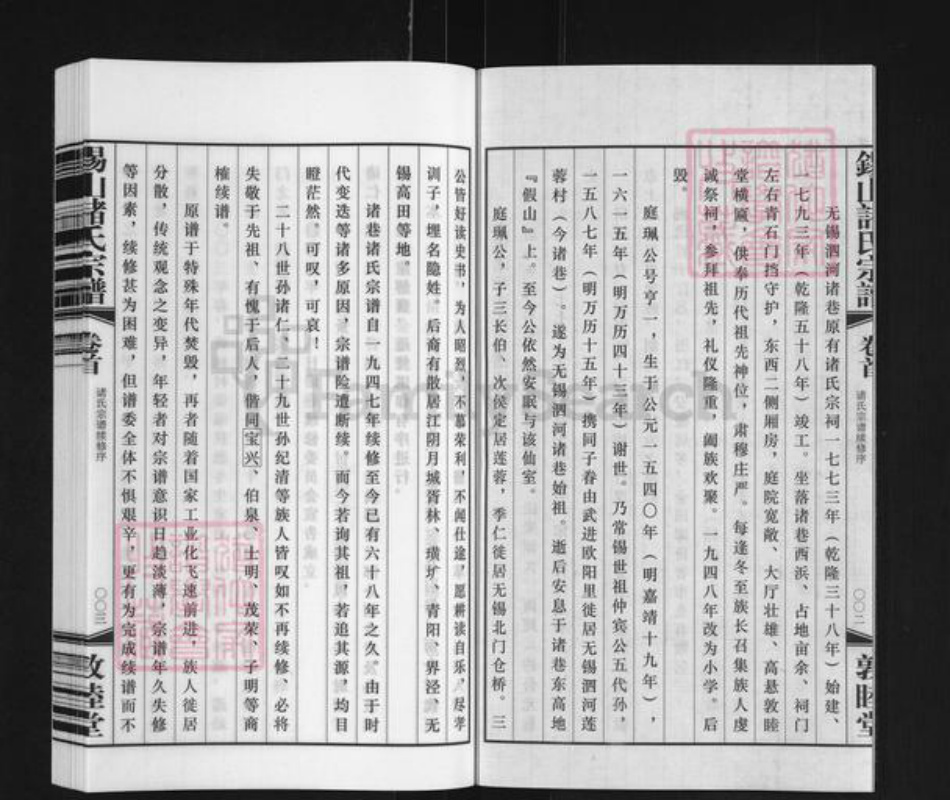 錫山諸氏宗譜
卷首
诸氏宗谱续修序
〇〇二
敦睦堂
无锡泗河诸巷原有诸氏宗祠一七七三年（乾隆三十八年）始建、
一七九三年（乾隆五十八年）竣工。坐落诸巷西浜、占地亩余、祠门
左右青石门挡守护，东西二侧厢房，庭院宽敞、大厅壮雄、高悬敦睦
堂横匾，供奉历代祖先神位，肃穆庄严。每逢冬至族长召集族人虔
诚祭祠，参拜祖先，礼仪隆重，阖族欢聚。一九四八年改为小学。后
毁。
庭珮公号亨一，生于公元一五四〇年（明嘉靖十九年），
一六一五年（明万历四十三年）谢世。乃常锡世祖仲宾公五代孙，
一五八七年（明万历十五年）携同子眷由武进欧阳里徙居无锡泗河莲
蓉村（今诸巷）。遂为无锡泗河诸巷始祖。逝后安息于诸巷东高地
『假山』上。至今公依然安眠与该仙室。
庭珮公，子三长伯、次侯定居莲蓉，季仁徙居无锡北门仓桥。三
公皆好读史书，为人昭烈，不慕荣利，不闻仕途，愿耕读自乐，尽孝
训子，埋名隐姓。后裔有散居江阴月城胥林、璜圹、青阳、界泾、无
锡高田等地。
诸巷诸氏宗谱自一九四七年续修至今已有六十八年之久。由于时
代变迭等诸多原因，宗谱险遭断续，而今若询其祖，若追其源，均目
瞪茫然。可叹，可哀！
二十八世孙诸仁、二十九世孙纪清等族人皆叹如不再续修、必将
失敬于先祖、有愧于后人，偕同宝兴、伯泉、士明、茂荣、子明等商
榷续谱。
原谱于特殊年代焚毁，再者随着国家工业化飞速前进，族人徙居
分散，传统观念之变异，年轻者对宗谱意识日趋淡薄，宗谱年久失修
等因素，续修甚为困难，但谱委全体不惧艰辛，更有为完成续谱而不
錫山諸氏宗譜
卷首
诸氏宗谱续修序
〇〇三
敦睦堂
FamilySearch